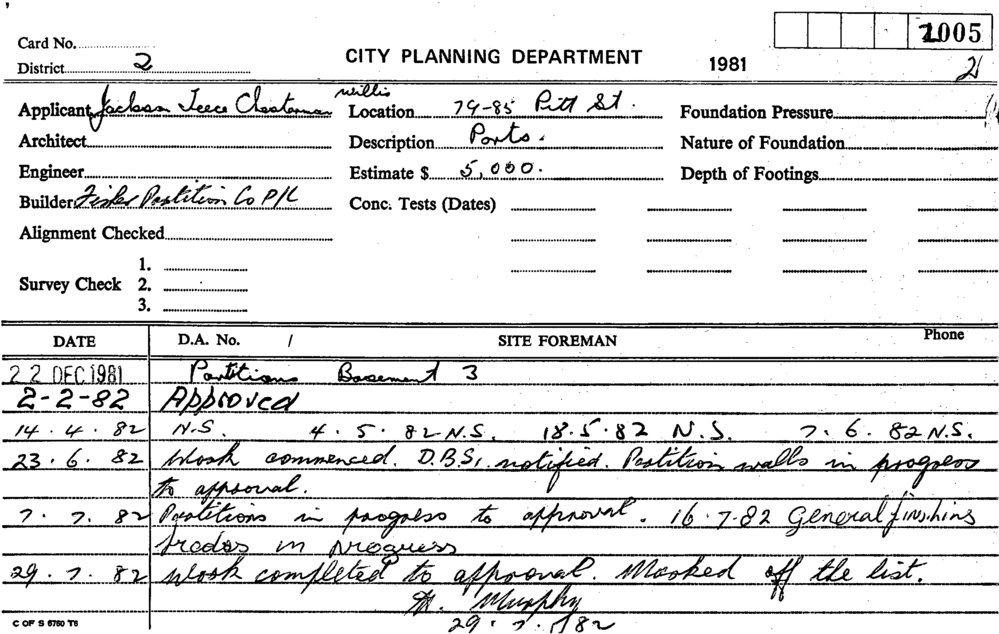 1005
Card No.
District 2 CITY PLANNING DEPARTMENT 1981 21
Applicant Jackson Teece Chesterman Willis Location 79-85 Pitt St. Foundation Pressure
Architect Description Parts. Nature of Foundation
Engineer Estimate $ 5,000. Depth of Footings
Builder Fisher Partition Co P/L Conc. Tests (Dates)
Alignment Checked
1.
Survey Check 2.
3.
DATE D.A. No. / SITE FOREMAN Phone
22 DEC 1981 Partitions Basement 3
2-2-82 Approved
14.4.82 N.S. 4.5.82 N.S. 18.5.82 N.S. 7.6.82 N.S.
23.6.82 Work commenced. D.B.S. notified. Partition walls in progress
to approval.
7.7.82 Partitions in progress to approval. 16.7.82 General finishing
trades in progress
29.7.82 Work completed to approval. Marked off the list.
Murphy
29.7.82
C OF S 6760 T6